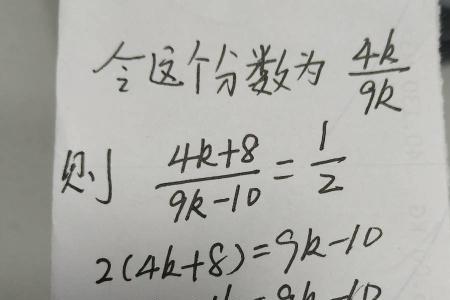 令这个分数为 4k/9k
则 (4k+8)/(9k-10) = 1/2
2(4k+8)=9k-10
=9k-10